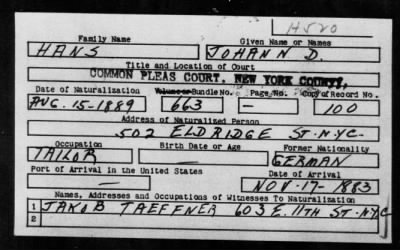 H520
Family Name Given Name or Names
HANS JOHANN D.
Title and Location of Court
COMMON PLEAS COURT, NEW YORK COUNTY,
Date of Naturalization Volume or Bundle No. Page No. Copy of Record No.
AUG. 15-1889 663 — 100
Address of Naturalized Person
502 ELDRIDGE ST. N.Y.C.
Occupation Birth Date or Age Former Nationality
TAILOR — GERMAN
Port of Arrival in the United States Date of Arrival
— NOV. 17-1883
Names, Addresses and Occupations of Witnesses To Naturalization
1 JAKOB TAEFFNER 603 E. 11TH ST. N.Y.C
2